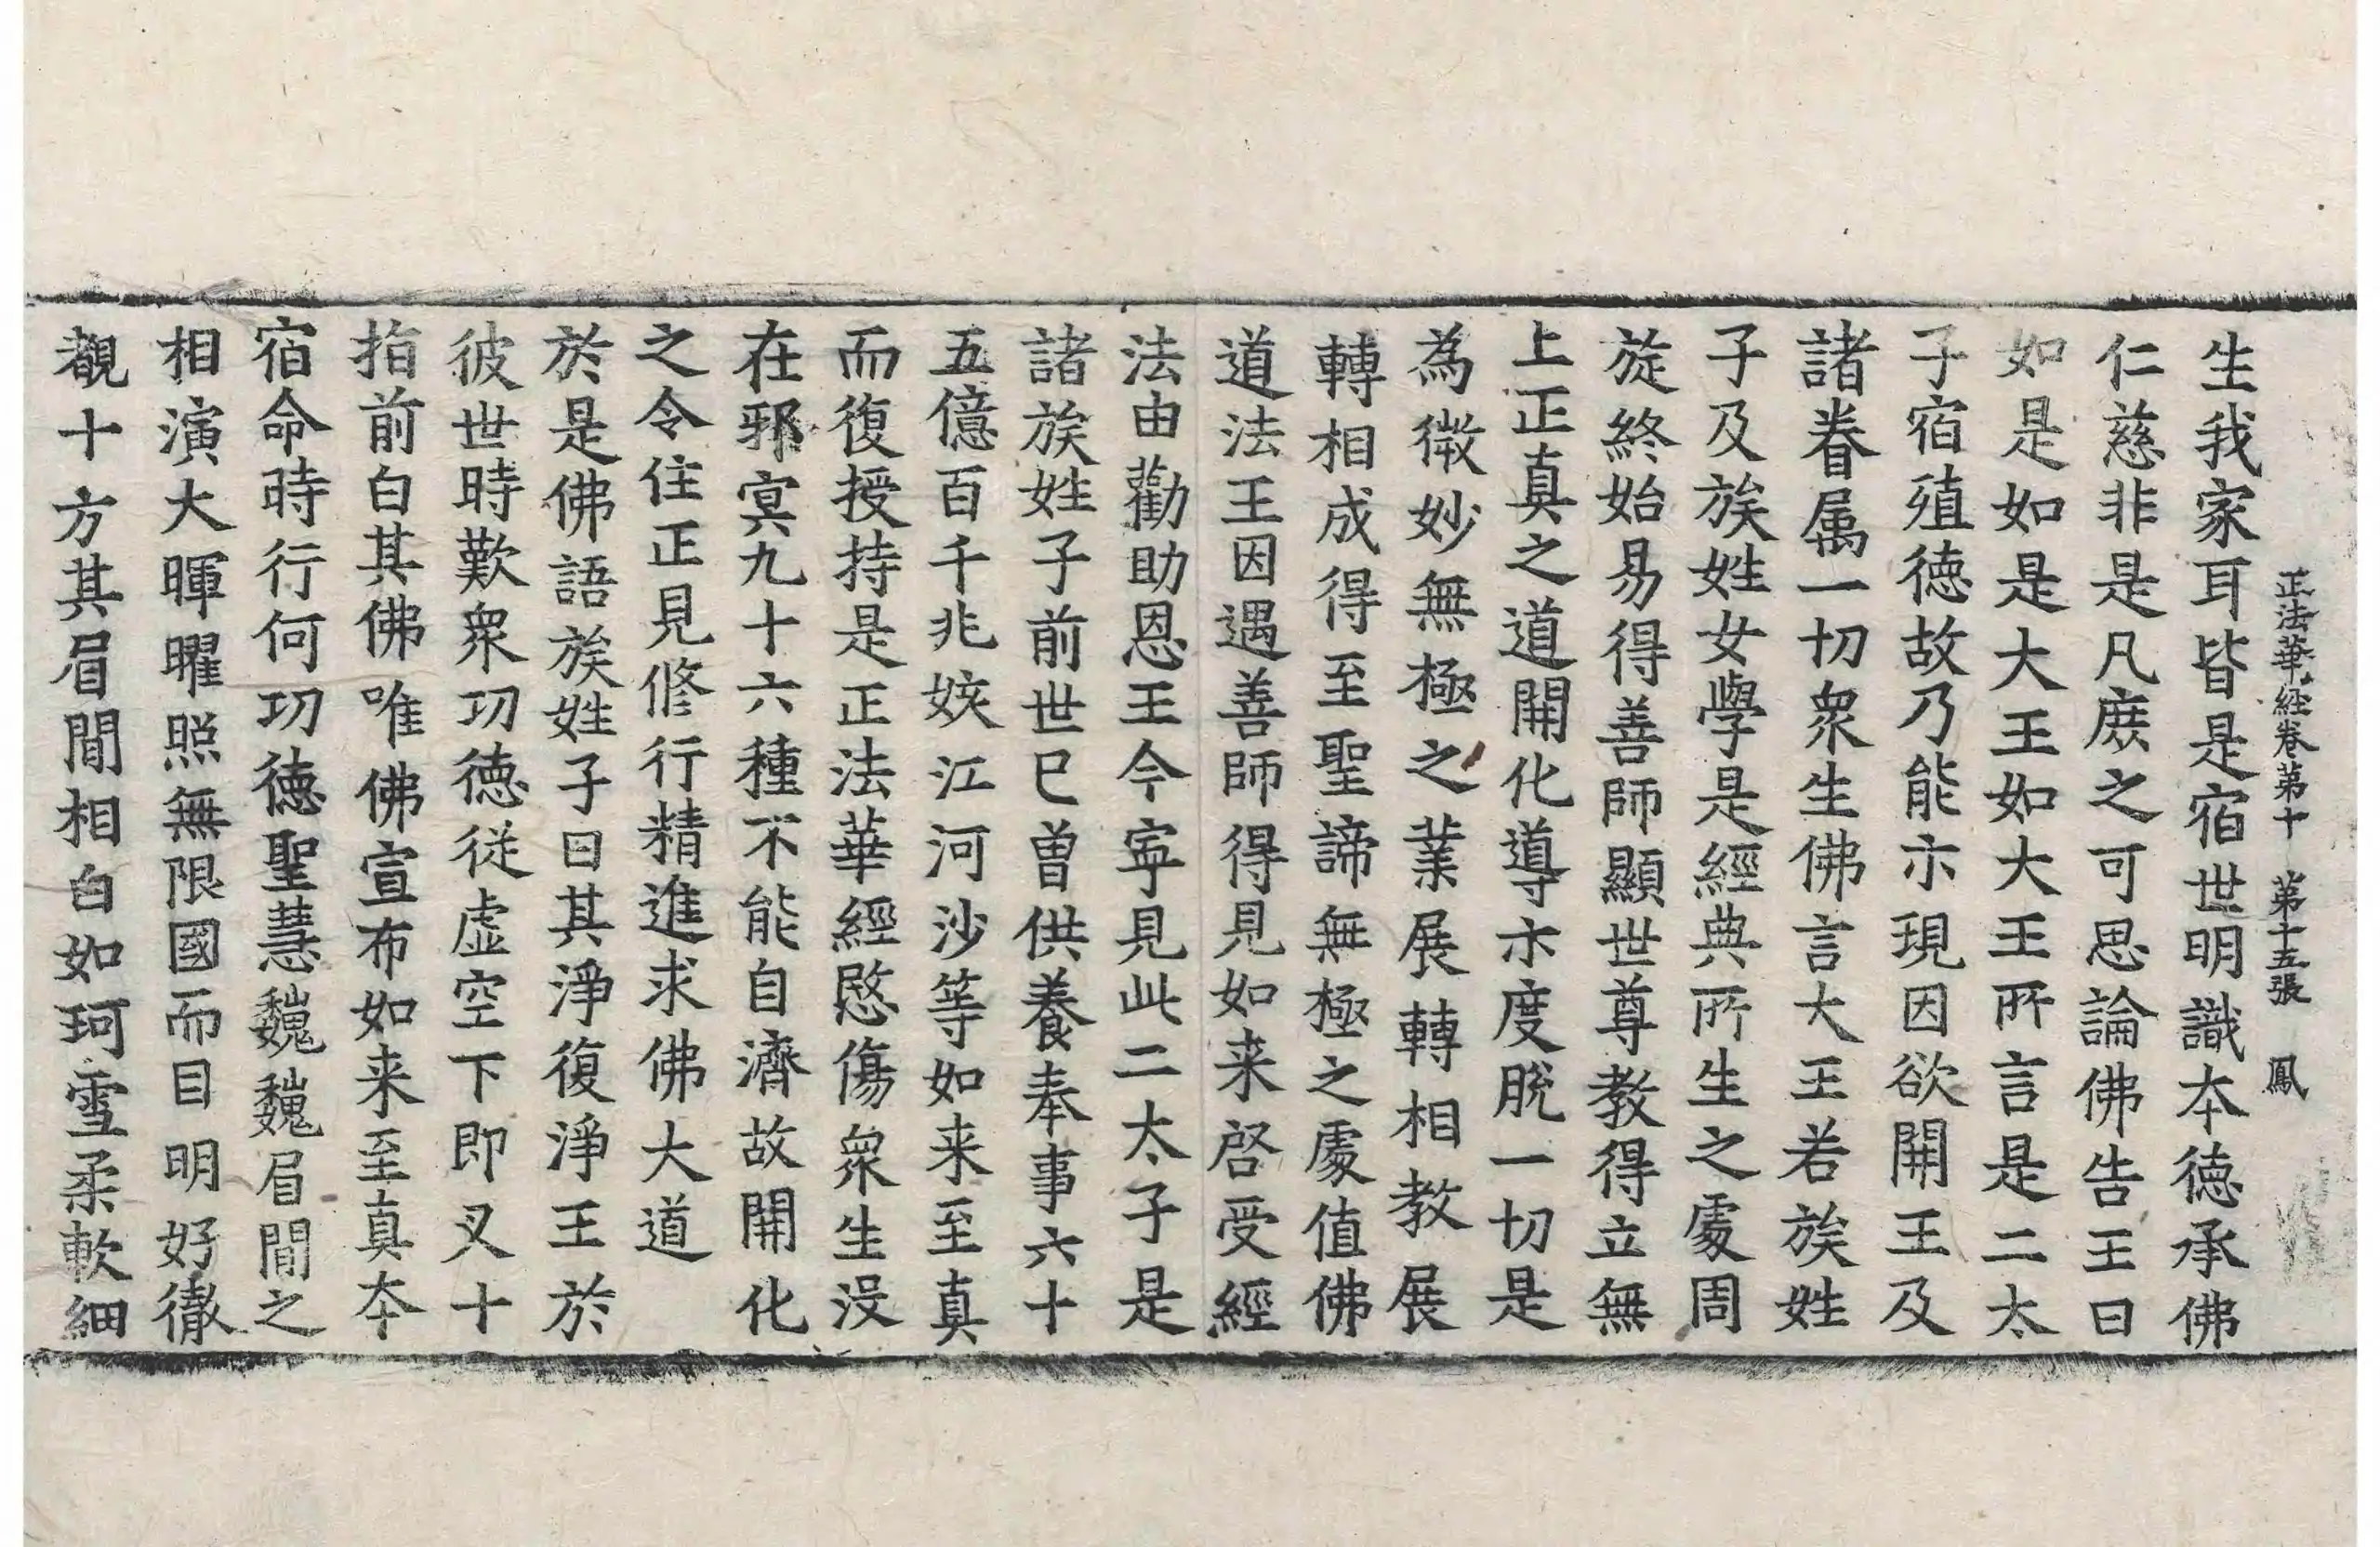 正法華經卷第十　第十五張　鳳
生我家耳皆是宿世明識夲德承佛
仁慈非是凡庻之可思論佛告王曰
如是如是大王如大王所言是二太
子宿殖德故乃能示現因欲開王及
諸眷属一切衆生佛言大王若族姓
子及族姓女學是經典所生之處周
旋終始易得善師顯世尊教得立無
上正真之道開化導示度脫一切是
為微妙無極之業展轉相教展
轉相成得至聖諦無極之處值佛
道法王因遇善師得見如来啓受經
法由勸助恩王今寧見此二太子是
諸族姓子前世已曽供養奉事六十
五億百千兆姟江河沙等如来至真
而復授持是正法華經愍傷衆生没
在邪冥九十六種不能自濟故開化
之令住正見修行精進求佛大道
於是佛語族姓子曰其淨復淨王於
彼世時歎衆功德従虛空下即叉十
指前白其佛唯佛宣布如来至真夲
宿命時行何功德聖慧巍巍眉間之
相演大暉曜照無限國而目明好徹
覩十方其眉間相白如珂雪柔軟細